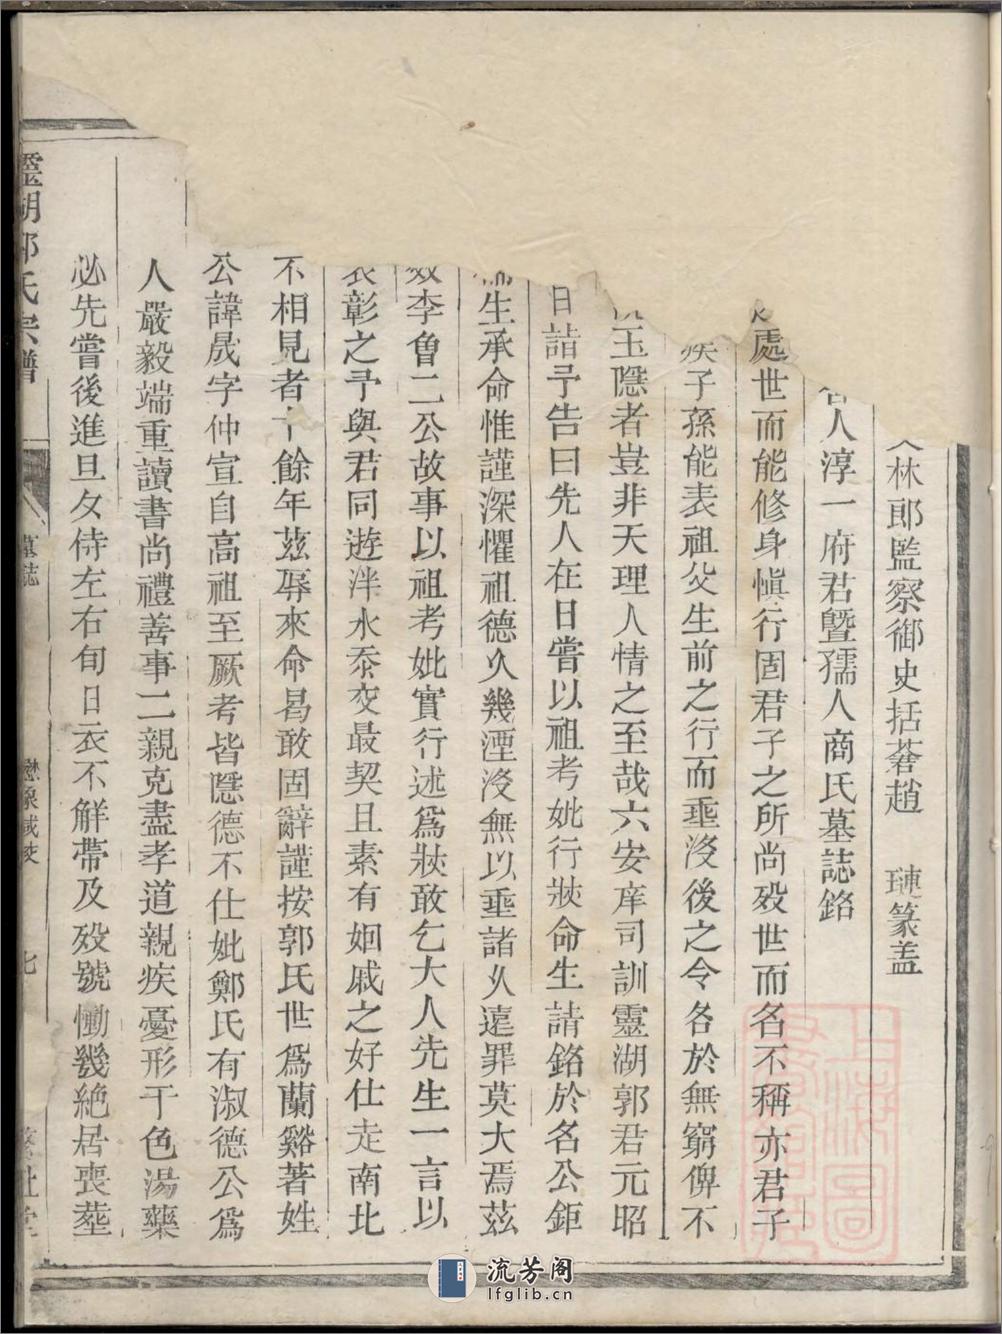 林郎監察御史括蒼趙　璉篆盖
人淳一府君曁孺人商氏墓誌銘
處世而能修身愼行固君子之所尚歿世而名不稱亦君子
疾子孫能表祖父生前之行而垂沒後之令名於無窮俾不
玉隱者豈非天理人情之至哉六安庠司訓靈湖郭君元昭
日詣予告曰先人在日嘗以祖考妣行狀命生請銘於名公鉅
生承命惟謹深懼祖德久幾湮沒無以垂諸久遠罪莫大焉茲
效李曾二公故事以祖考妣實行述爲狀敢乞大人先生一言以
表彰之予與君同遊泮水忝交最契且素有姻戚之好仕走南北
不相見者十餘年茲辱來命曷敢固辭謹按郭氏世爲蘭谿著姓
公諱晟字仲宣自高祖至厥考皆隱德不仕妣鄭氏有淑德公爲
人嚴毅端重讀書尚禮善事二親克盡孝道親疾憂形于色湯藥
必先嘗後進旦夕侍左右旬日衣不解帶及歿號慟幾絶居喪塟
靈湖郭氏宗譜
墓誌
七
上海圖
流芳阁
lfglib.cn